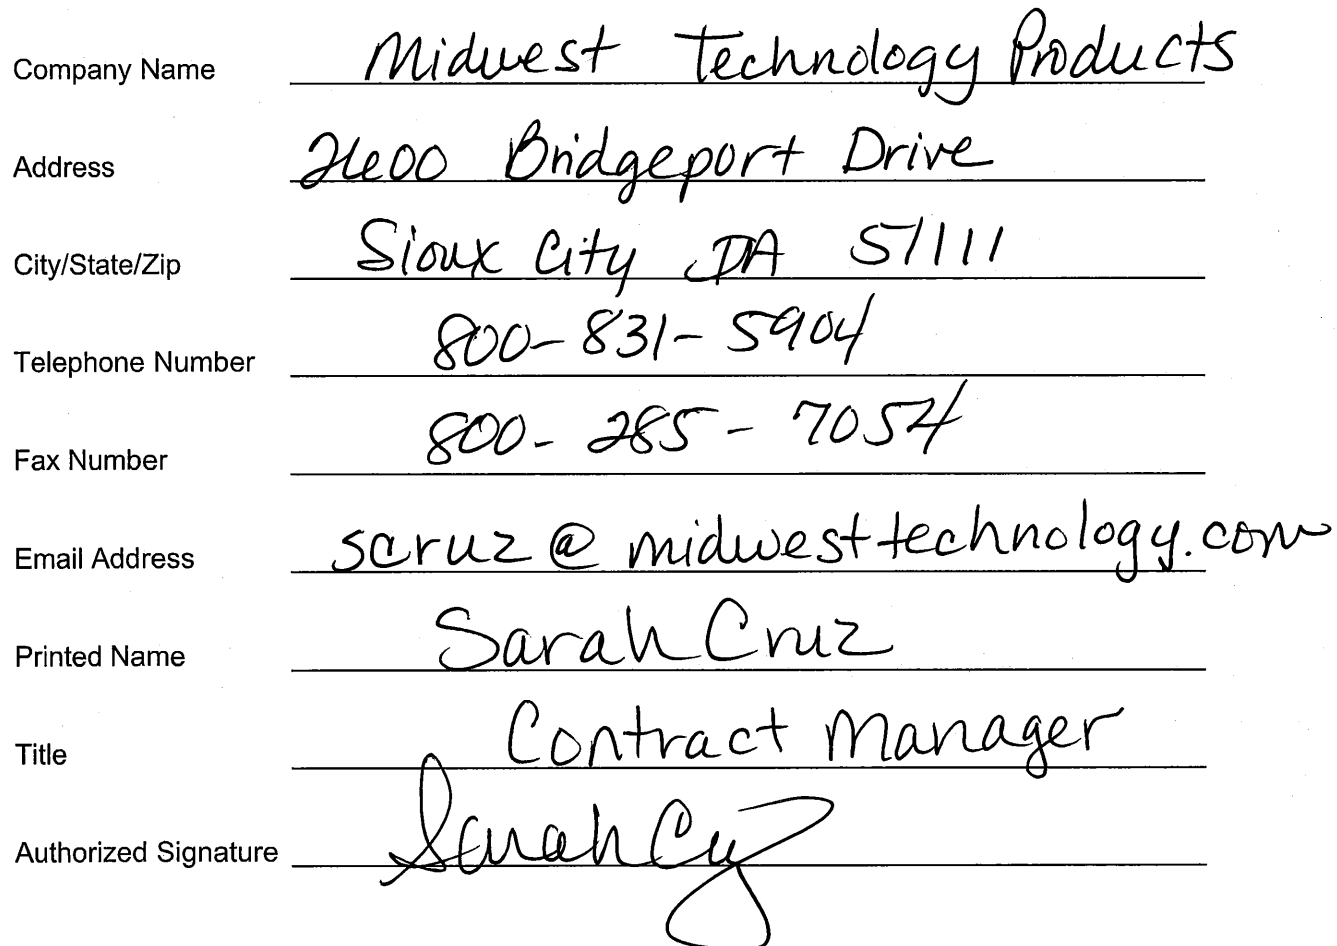 Company Name Midwest Technology Products
Address 2600 Bridgeport Drive
City/State/Zip Sioux City IA 51111
Telephone Number 800-831-5904
Fax Number 800-285-7054
Email Address scruz@midwesttechnology.com
Printed Name Sarah Cruz
Title Contract Manager
Authorized Signature Sarah Cruz